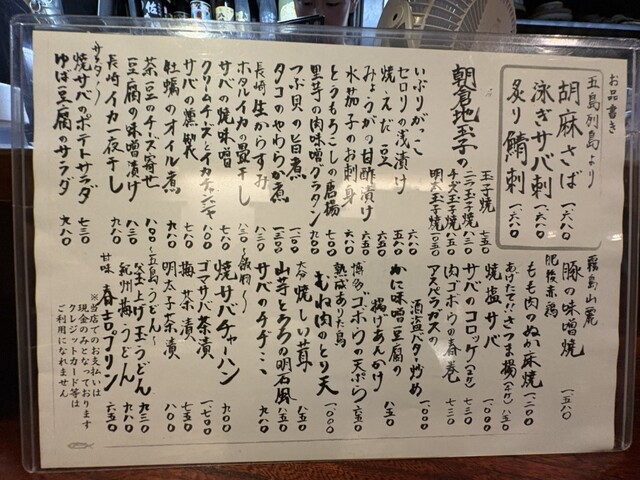 お品書き
五島列島より
胡麻さば 一、六八〇
泳ぎサバ刺 一、六八〇
炙り鯖刺 一、六八〇
朝倉地玉子の
玉子焼 七五〇
ニラ玉子焼 八五〇
チーズ玉子焼 八三〇
明太玉子焼 一〇五〇
いぶりがっこ 六八〇
セロリの浅漬け
焼・えだ豆 六五〇
みょうがの甘酢漬け
水茄子のお刺身
とうもろこしの唐揚 七〇〇
里芋の肉味噌グラタン 九〇〇
つぶ貝の旨煮
タコのやわらか煮
長崎 生からすみ
ホタルイカの畳干し
クリームチーズとイカチャンジャ
サバの焼味噌
サバの燻製
牡蠣のオイル煮
茶豆のチーズ寄せ 八〇〇
豆腐の味噌漬け 八三〇
長崎 イカ一夜干し 九八〇
サラダ〜
焼サバのポテトサラダ 七三〇
ゆば豆腐のサラダ 九八〇
霧島山麓
豚の味噌焼 一、五八〇
肥後赤鶏
もも肉のぬか床焼 一、二〇〇
あげたて!!さつま揚
焼塩サバ
サバのコロッケ
肉ゴボウの春巻 七三〇
アスパラガスの
酒盗バター炒め 一、〇〇〇
かに味噌豆腐の
揚げあんかけ 八五〇
博多ゴボウの天ぷら 六五〇
熟成ありた鳥
むね肉のとり天 一、〇〇〇
大分 焼しい茸 八五〇
山芋とろろの明石風 八五〇
サバのチヂミ 九八〇
〜飯物〜
焼サバチャーハン 九〇〇
ゴマサバ茶漬 一、七〇〇
梅茶漬 七五〇
明太子茶漬 八〇〇
〜五島うどん〜
釜上げ玉うどん 九三〇
紀州梅うどん 九八〇
甘味 春吉プリン 六五〇
※当店でのお支払いは
現金のみとなっております
クレジットカード等は
ご利用になれません